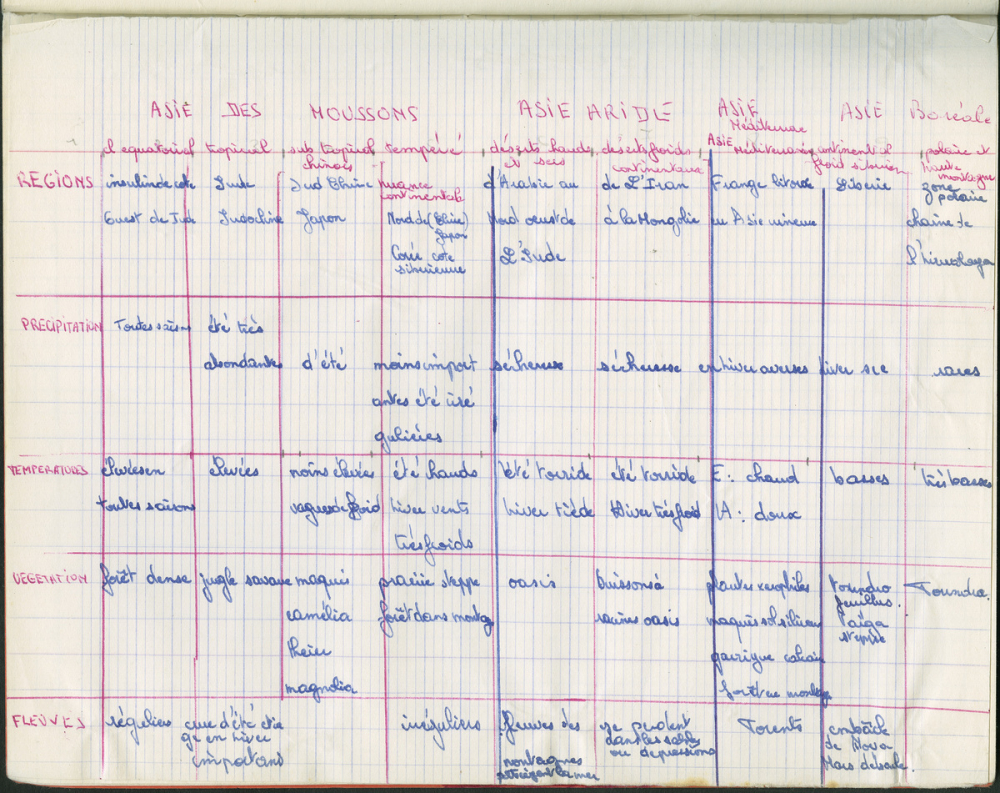 ASIE DES MOUSSONS ASIE ARIDE ASIE Méditerranée ASIE Boréale
équatorial tropical sub tropical chinois tempéré déserts chauds et secs déserts froids continentaux ASIE Méditerranée continent et froid sibérien polaire et haute montagne
REGIONS insulinde cote Inde Sud Chine nuance continentale d'Arabie au de L'Iran Frange litorale Siberie zone polaire
Ouest de Inde Indochine Japon Nord de (Chine) Japon Nord ouest de à la Mongolie en Asie mineure chaine de
Corée cote sibérienne L'Inde l'himalaya
PRECIPITATION Toutes saisons été très
abondantes d'été moins import sécheresse sécheresse en hiver averses hiver sec rares
antes été irré
gulières
TEMPERATURES élevées en élevées moins élevées été chauds été torride été torride E: chaud basses très basses
toutes saisons vagues de froid hiver vents hiver tiède Hiver très froid H: doux
très froids
VEGETATION forêt dense jugle savane maquis prairie steppe oasis buissons à plantes xerophiles toundra Toundra
camélia forêt dans montag racines oasis maquis sol siliceux feuillus. Taïga
theier garrigue calcair steppe
magnolia forêt en montag
FLEUVES réguliers crue d'été étia irréguliers fleuves des se perdent Torents embâcle
ge en hiver dans les sables de Nova
importans ou depressions Mars debacle.
montagnes
atteignent la mer